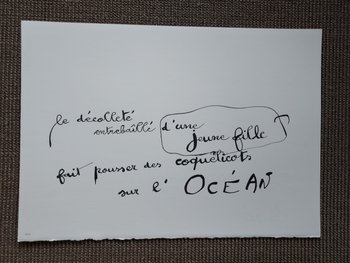 le décolleté
entrebaîllé d'une
jeune fille
fait pousser des coquelicots
sur l' OCÉAN